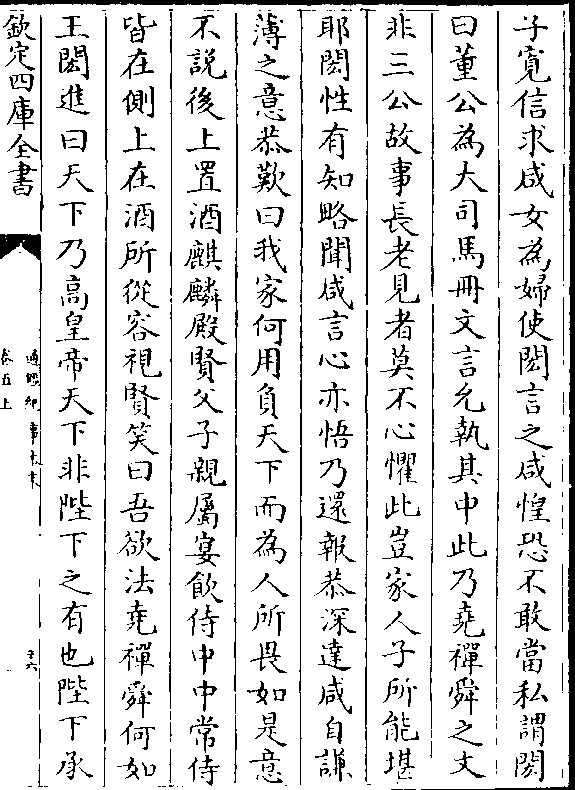 子寛信求咸女為婦使閎言之咸惶恐不敢當私謂閎
曰董公為大司馬冊文言允執其中此乃堯禪舜之文
非三公故事長老見者莫不心懼此豈家人子所能堪
耶閎性有知略聞咸言心亦悟乃還報恭深達咸自謙
薄之意恭歎曰我家何用負天下而為人所畏如是意
不說後上置酒麒麟殿賢父子親屬宴飲侍中中常侍
皆在側上在酒所從容視賢笑曰吾欲法堯禪舜何如
王閎進曰天下乃高皇帝天下非陛下之有也陛下承
欽定四庫全書
通鑑紀事本末
卷五上